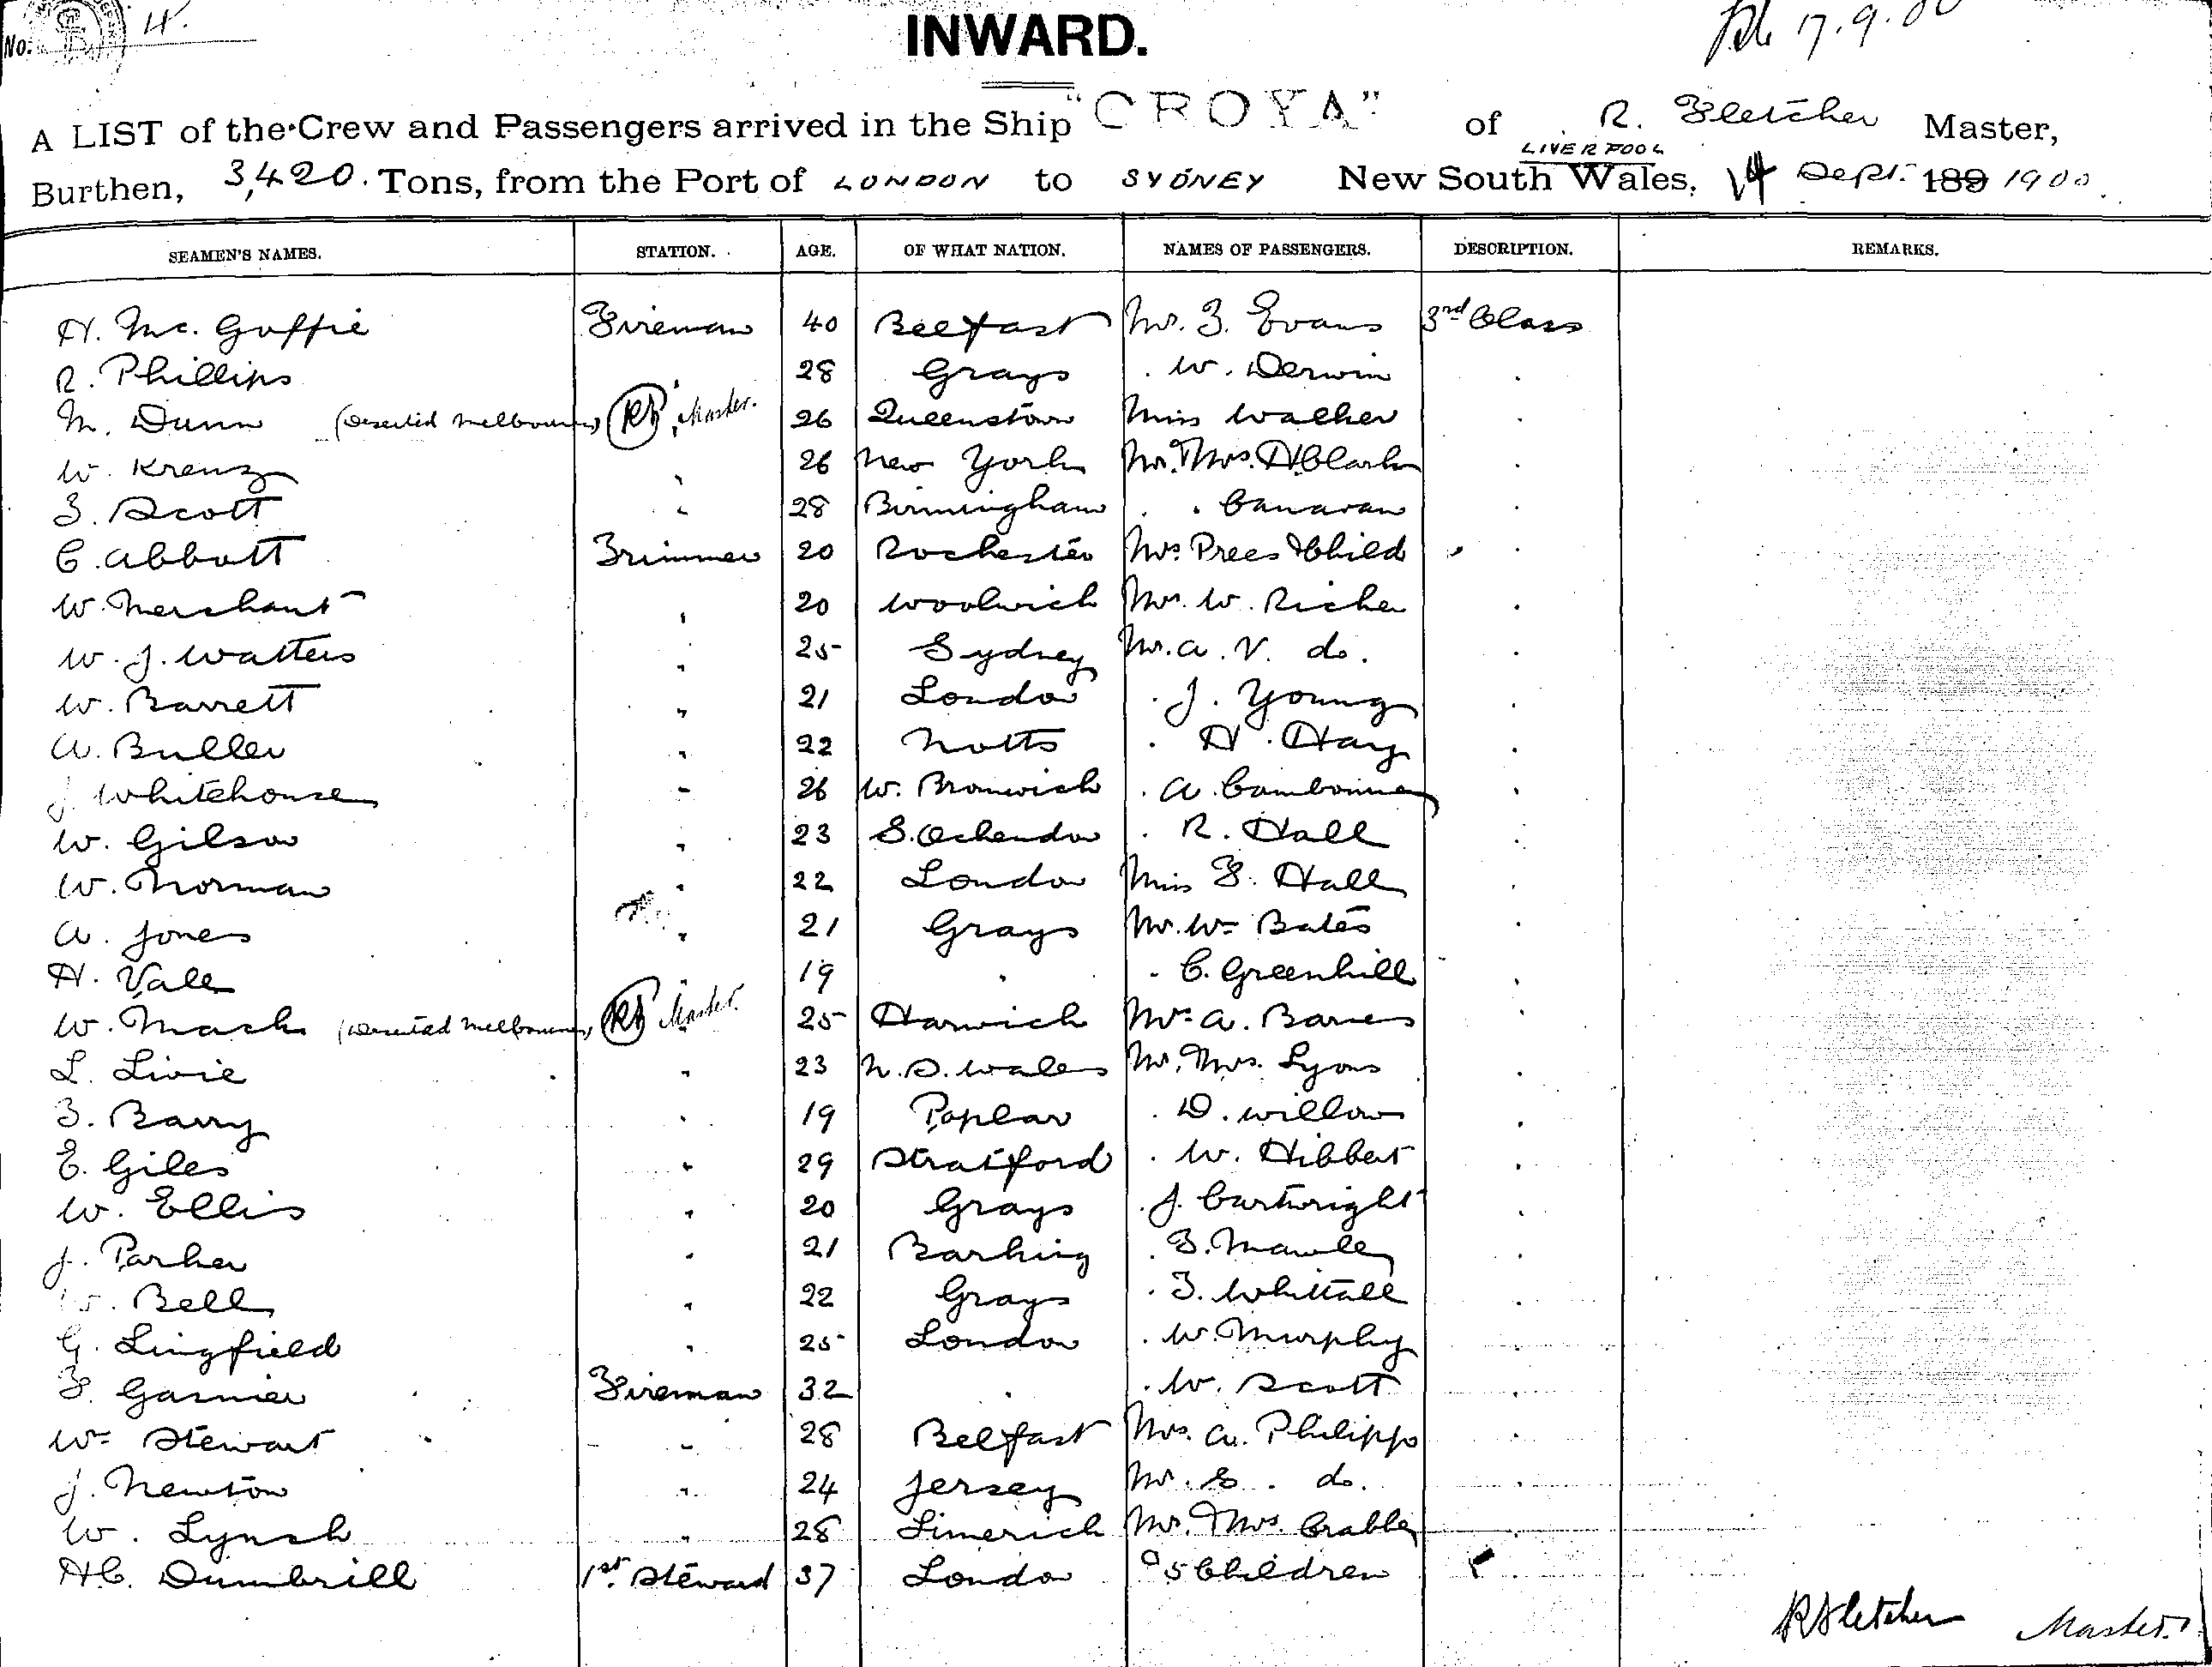 No. 4.
INWARD.
17.9.00
A LIST of the Crew and Passengers arrived in the Ship "OROYA" of LIVERPOOL R. Fletcher Master,
Burthen, 3,420. Tons, from the Port of LONDON to SYDNEY New South Wales, 14 Sept. 189 1900
SEAMEN'S NAMES. STATION. AGE. OF WHAT NATION. NAMES OF PASSENGERS. DESCRIPTION. REMARKS.
H. Mc. Guffie Fireman 40 Belfast Mr. F. Evans 3rd Class
R. Phillips " 28 Grays " W. Derwin "
M. Dunn (Deserted Melbourne) RF Master. 26 Queenstown Miss Walker "
W. Krenz " 26 New York Mr. & Mrs. H Clark "
F. Scott " 28 Birmingham " " Canavan "
C. Abbott Trimmer 20 Rochester Mrs Prees & Child "
W. Merchant " 20 Woolwich Mrs. W. Riche "
W. J. Watters " 25 Sydney Mr. A. V. do. "
W. Barrett " 21 London " J. Young "
A. Buller " 22 Notts " H. Hay "
J. Whitehouse " 26 W. Bromwich " A. "
W. Gilson " 23 S. Ockendon " R. Hall "
W. Norman " 22 London Miss F. Hall "
A. Jones " 21 Grays Mr. Wm Bates "
H. Vale " 19 " " C. Greenhill "
W. Mack (Deserted Melbourne) RF Master. 25 Harwich Mr. A. Barnes "
L. Livie " 23 N. S. Wales Mr. & Mrs. Lyons "
T. Barry " 19 Poplar " D. Willow "
E. Giles " 29 Stratford " W. Hibbert "
W. Ellis " 20 Grays " J. Cartwright "
J. Parker " 21 Barking " T. Mawle "
W. Bell " 22 Grays " T. Whittall "
G. Lingfield " 25 London " W. Murphy "
F. Garnier Fireman 32 " " W. Scott "
Wm Stewart " 28 Belfast Mrs. A. Philipps "
J. Newton " 24 Jersey Mr. S. do. "
W. Lynch " 28 Limerick Mr. & Mrs. Crabbe "
H.C. Dumbrill 1st Steward 37 London & 5 Children "
R Fletcher Master.